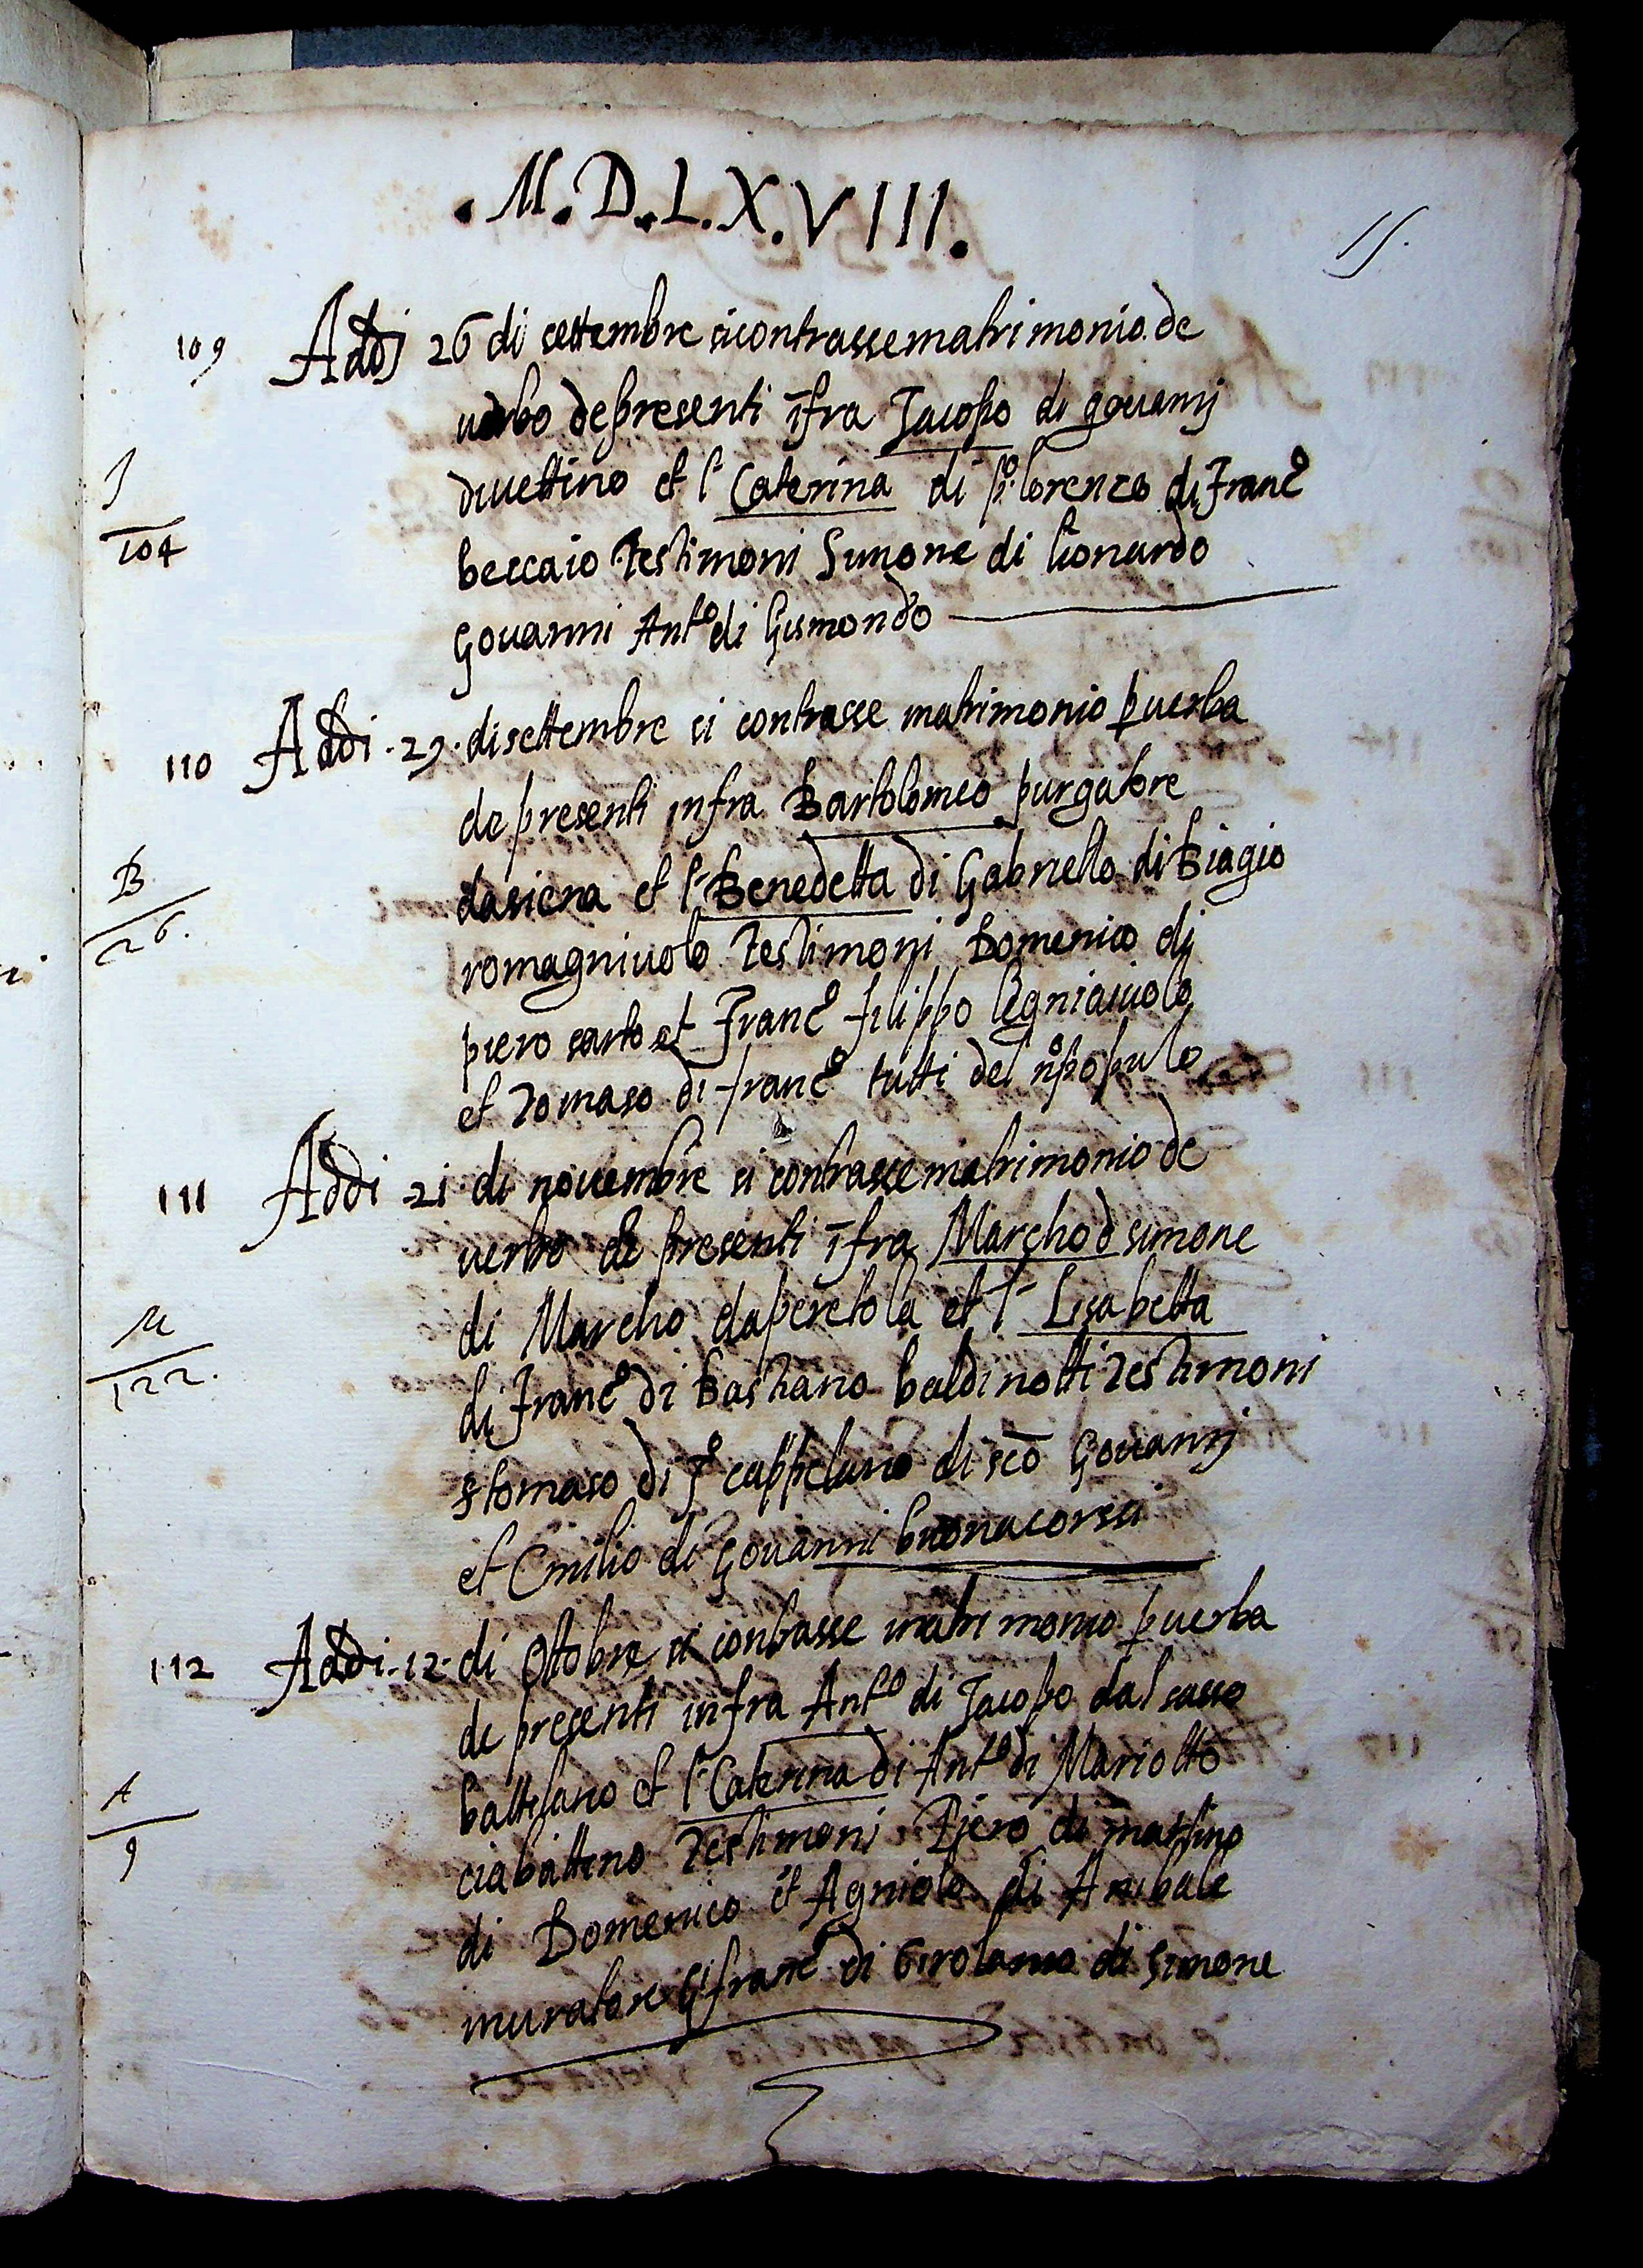 .M.D.L.X.VIII.
15.
109 Addj 26 di settembre si contrasse matrimonio de
verbo de presenti īfra Jacopo di govannj
divettino et lᵃ Caterina di lorenzo di Francº
beccaio Testimoni Simone di lionardo
Govanni Antº di Gismondo
J
104
110 Addi .29. di settembre si contrasse matrimonio p verba
de presenti infra Bartolomeo purgatore
da siena et lᵃ Benedetta di Gabriello di Biagio
romagniuolo Testimoni Domenico di
piero sarto et Francº filippo legniaiuolo
et Tomaso di francº tutti del nº popolo
B
26.
111 Addi 21 di novembre si contrasse matrimonio de
verbo de presenti īfra Marcho d simone
di Marcho da peretola et lᵃ Lisabetta
di Francº di Bastiano baldinotti Testimoni
tomaso di cappelano di scō Govannj
et Emilio di Govanni buonacorsci
M
122.
112 Addi .12. di Ottobre si contrasse matrimonio p verba
de presenti infra Antº di Jacopo dal sasso
battilano et lᵃ Caterina di Antº di Mariotto
ciabattino Testimoni Piero di martino
di Domenico et Agniolo di Anibale
muratore francº di Girolamo di Simone
A
9